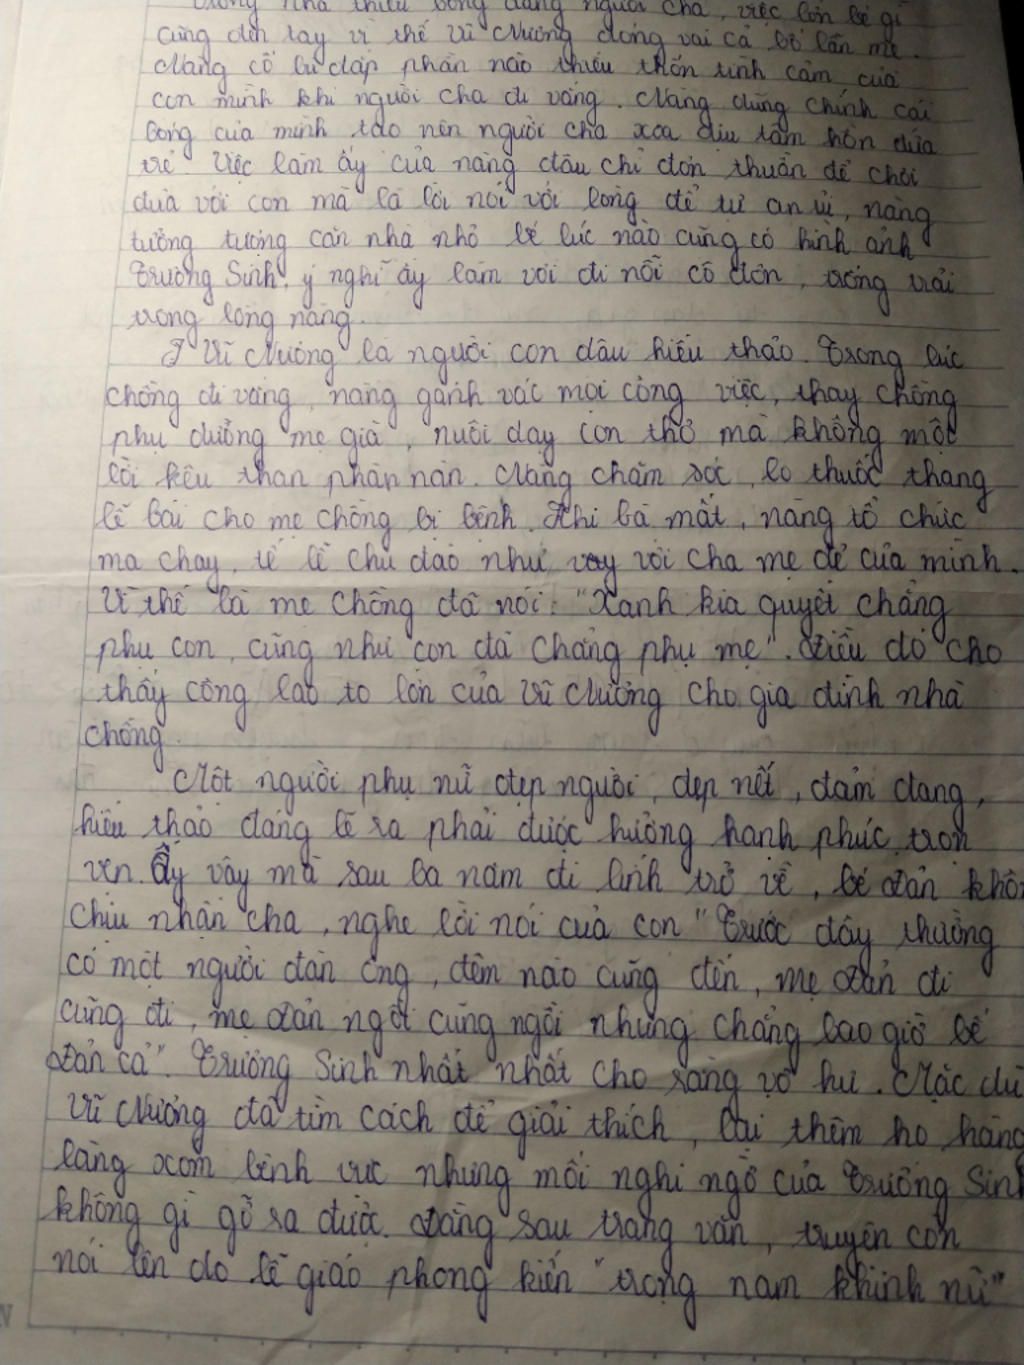 trong nhà thiếu bóng dáng người cha, việc lớn bé gì
cũng đến tay vì thế Vũ Nương đóng vai cả bố lẫn mẹ.
Nàng cố bù đắp phần nào thiếu thốn tình cảm của
con mình khi người cha đi vắng. Nàng dùng chính cái
bóng của mình tạo nên người cha xoa dịu tâm hồn đứa
trẻ. Việc làm ấy của nàng đâu chỉ đơn thuần để chơi
đùa với con mà là lời nói với lòng để tự an ủi, nàng
tưởng tượng căn nhà nhỏ bé lúc nào cũng có hình ảnh
Trương Sinh, ý nghĩ ấy làm vơi đi nỗi cô đơn, trống trải
trong lòng nàng.
Ở Vũ Nương là người con dâu hiếu thảo. Trong lúc
chồng đi vắng, nàng gánh vác mọi công việc, thay chồng
phụ dưỡng mẹ già, nuôi dạy con thơ mà không một
lời kêu than phàn nàn. Nàng chăm sóc, lo thuốc thang
lễ bái cho mẹ chồng bị bệnh. Khi bà mất, nàng tổ chức
ma chay, tế lễ chu đáo như vay với cha mẹ đẻ của mình.
Vì thế bà mẹ chồng đã nói: "Xanh kia quyết chẳng
phụ con, cũng như con đã chẳng phụ mẹ". Điều đó cho
thấy công lao to lớn của Vũ Nương cho gia đình nhà
chồng.
Một người phụ nữ đẹp người, đẹp nết, đảm đang,
hiếu thảo đáng lẽ ra phải được hưởng hạnh phúc trọn
vẹn. Ấy vậy mà sau ba năm đi lính trở về, bé Đản khô
chịu nhận cha, nghe lời nói của con "Trước đây thường
có một người đàn ông, đêm nào cũng đến, mẹ Đản đi
cũng đi, mẹ Đản ngồi cũng ngồi nhưng chẳng bao giờ bế
Đản cả". Trương Sinh nhất nhất cho rằng vợ hư. Mặc dù
Vũ Nương đã tìm cách để giải thích, lại thêm họ hàng
làng xóm bênh vực nhưng mối nghi ngờ của Trương Sinh
không gì gỡ ra được. Đằng sau trang văn, truyện còn
nói lên do lễ giáo phong kiến "trọng nam khinh nữ"